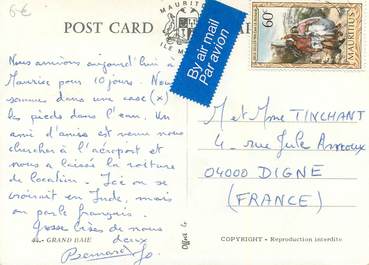 6€
POST CARD
MAURITIUS
60c
MAURITIUS
By air mail
Par avion
Nous arrivons aujourd'hui à
Maurice pour 10 jours. Nous
sommes dans une case (x)
les pieds dans l'eau. Un
ami d'amies est venu nous
chercher à l'aéroport et
nous a laissé la voiture
de location. Ici on se
croirait en Inde, mais
on parle français.
Grosse bises de nous
deux
Bernard Jo
44 - GRAND BAIE
M et Mme TINCHANT
4 - rue Jules
04000 DIGNE
(FRANCE)
COPYRIGHT - Reproduction interdite